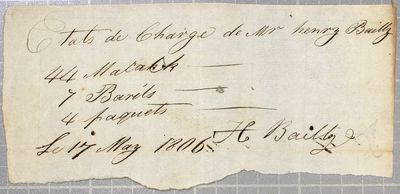 Etats de Charge de Mr henry Bailly
44 Macack
7 Barils
4 paquets
Le 17 May 1806 H Bailly